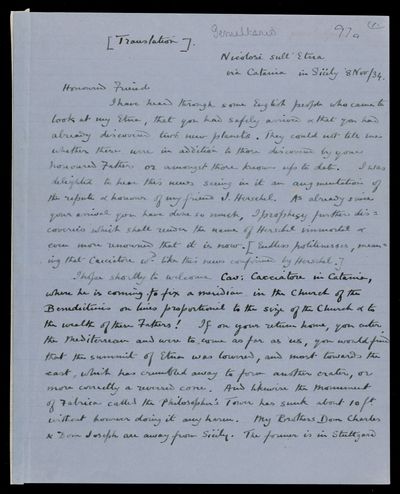 (1
Gemellaro
97a
[Translation].
Nicolosi sull' Etna
via Catania in Sicily 8 Nov/34.
Honoured Friend
I have heard through some English people who came to
look at my Etna, that you had safely arrived & that you had
already discovered two new planets. They could not tell me
whether these were in addition to those discovered by your
honoured Father or amongst those known up to date. I was
delighted to hear this news seeing in it an augmentation of
the repute & honour of my friend J. Herschel. As already since
your arrival you have done so much, I prophesy further dis=
coveries which shall render the name of Herschel immortal &
even more renowned than it is now. [Endless politenesses, mean-
ing that Cacciatore wd like this news confirmed by Herschel.]
I hope shortly to welcome Cav: Cacciatore in Catania,
where he is coming to fix a meridian in the Church of the
Benedictines on lines proportional to the size of the Church & to
the wealth of these Fathers! If on your return home, you enter
the Mediterranean and were to come as far as us, you would find
that the summit of Etna was lowered, and most towards the
east, which has crumbled away to form another crater, or
more correctly a reversed cone. And likewise the Monument
of Fabrica called the Philosopher's Tower has sunk about 10 ft
without however doing it any harm. My Brothers Dom Charles
& Dom Joseph are away from Sicily. The former is in Stuttgard